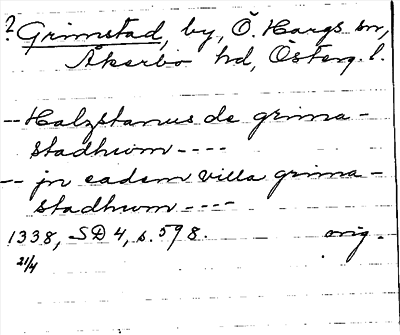 ? Grimstad, by, Ö. Hargs sn,
Åkerbo hd, Österg. l.
-- Halzstanus de grima-
stadhum ----
-- jn eadem villa grima-
stadhum ----
1338, SD 4, s. 598. orig.
21/4